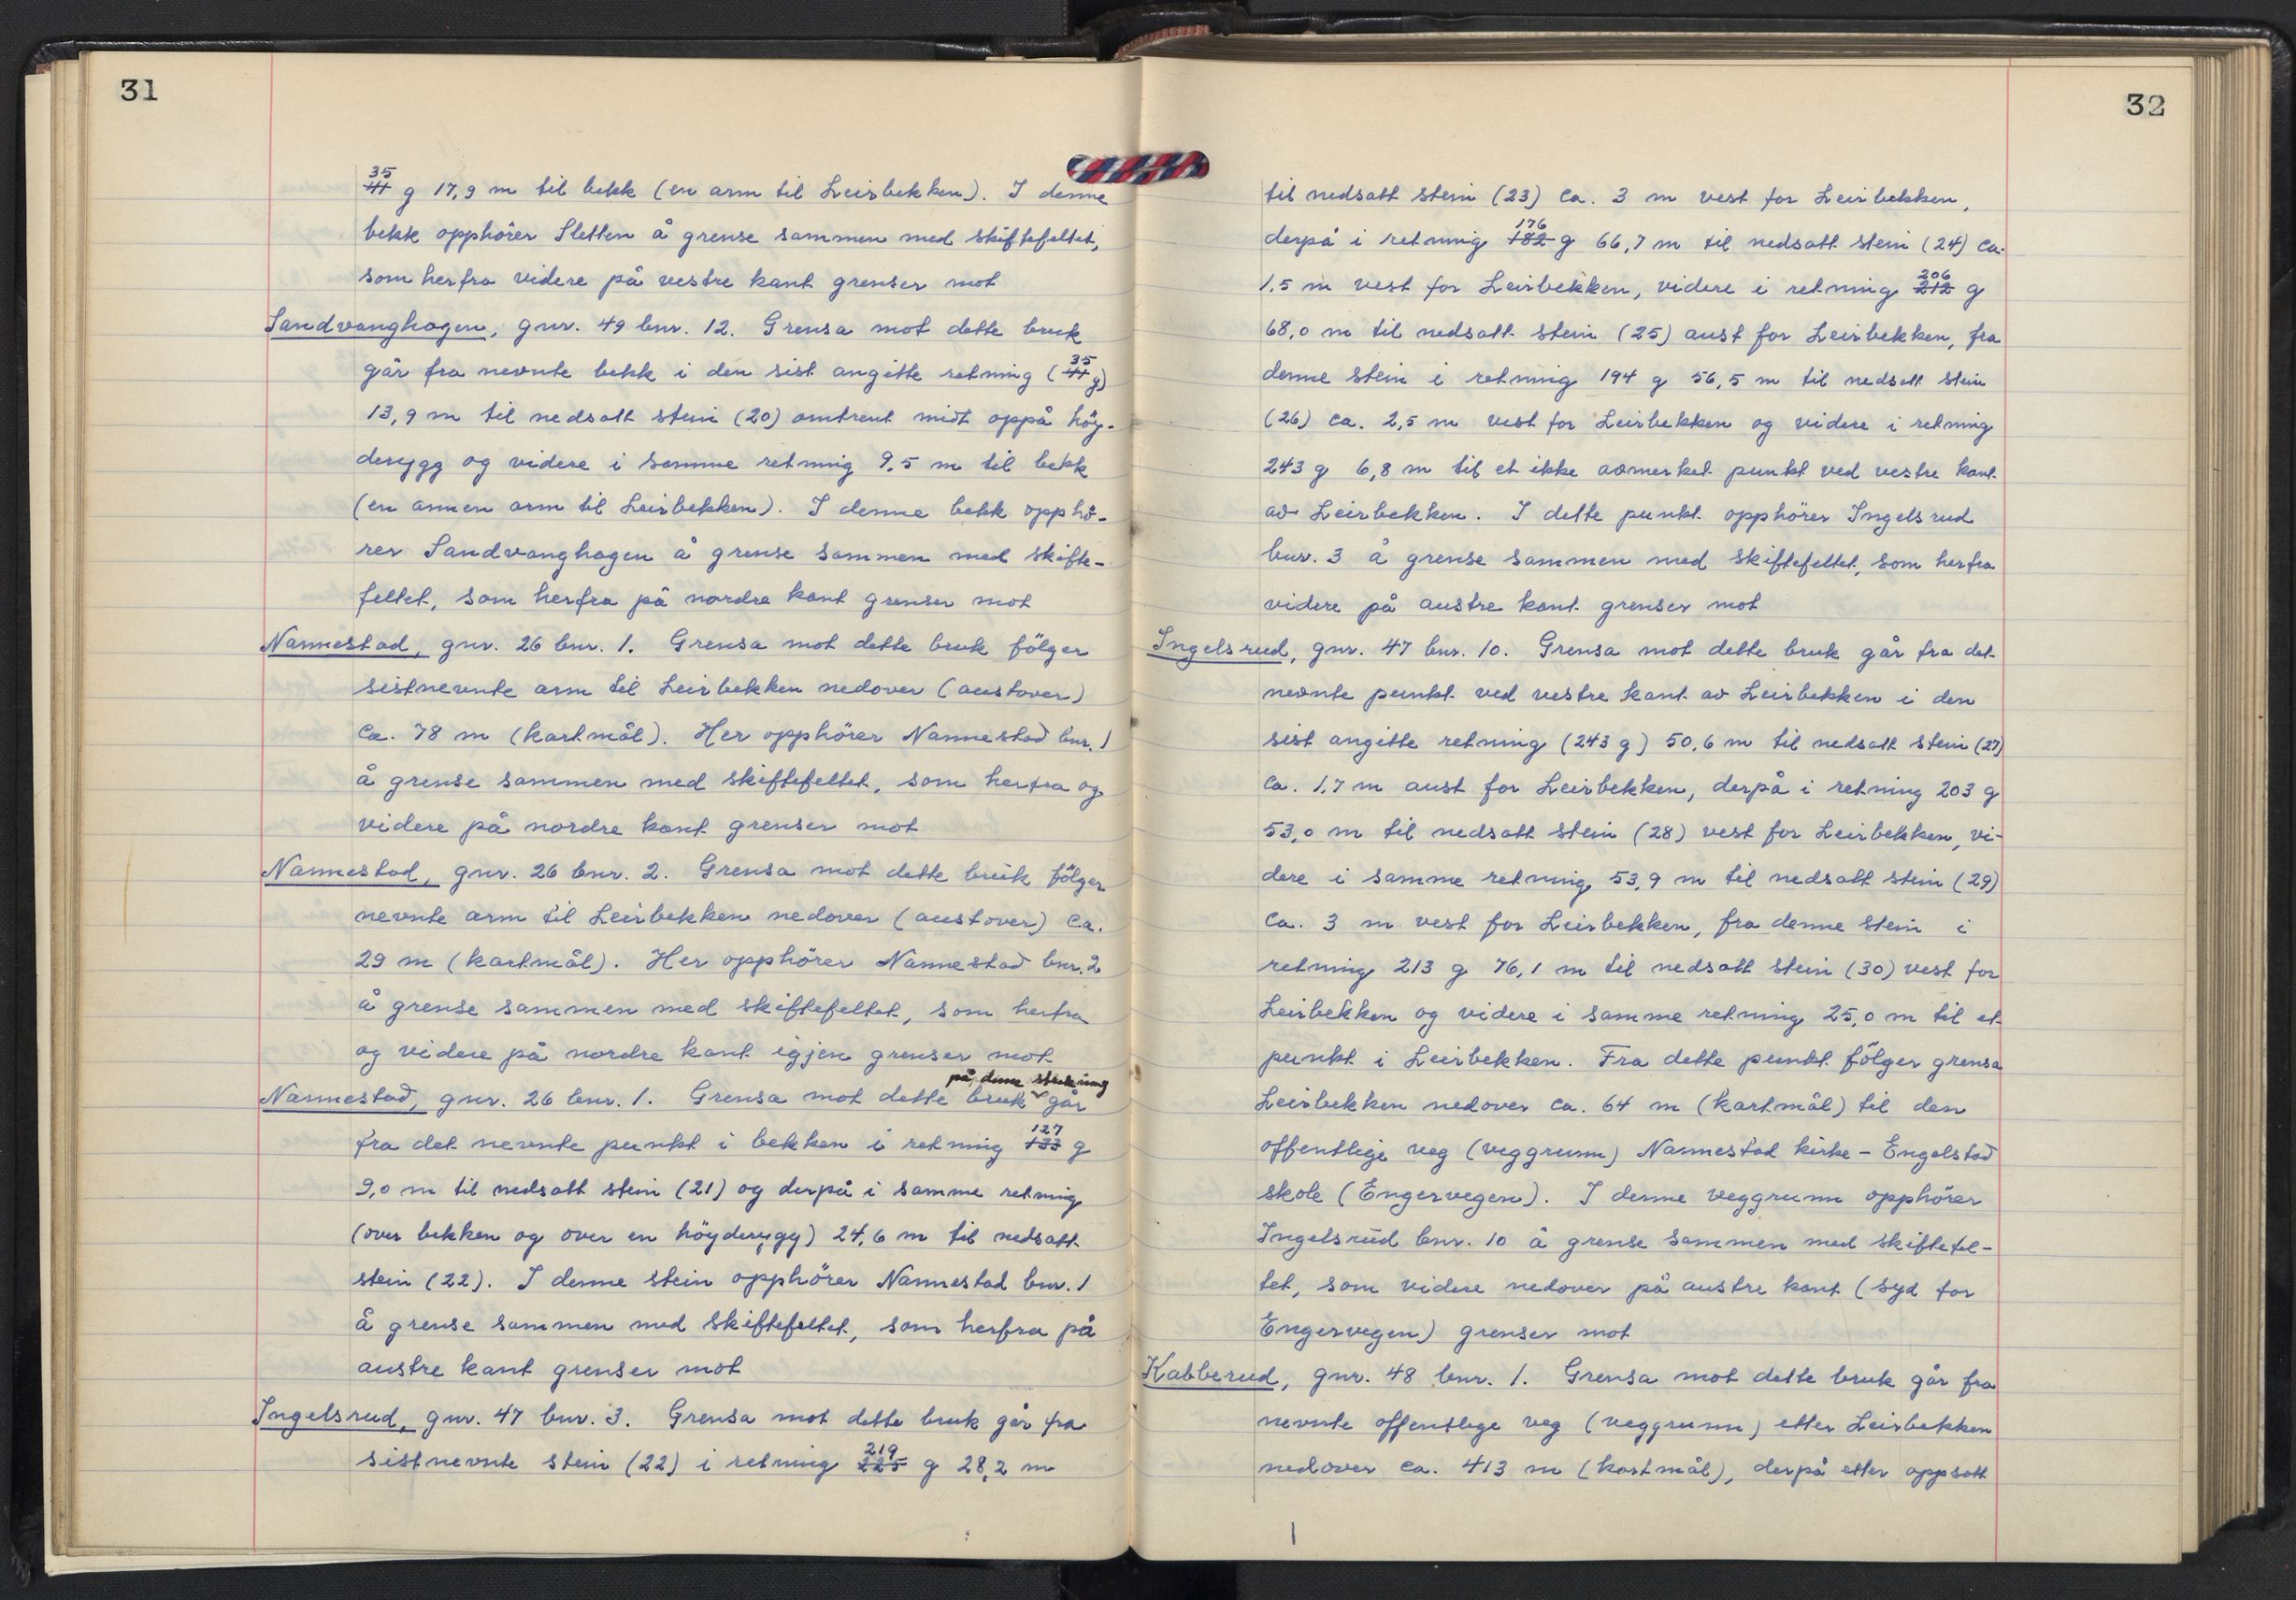 31
35
41 g 17,9 m til bekk (en arm til Leirbekken). I denne
bekk opphörer Sletten å grense sammen med skiftefeltet,
som herfra videre på vestre kant grenser mot
Sandvanghagen, gnr. 49 bnr. 12. Grensa mot dette bruk
35
går fra nevnte bekk i den sist angitte retning (41 g)
13,9 m til nedsatt stein (20) omtrent midt oppå höy-
derygg og videre i samme retning 9,5 m til bekk
(en annen arm til Leirbekken). I denne bekk opphö-
rer Sandvanghagen å grense sammen med skifte-
feltet, som herfra på nordre kant grenser mot
Nannestad, gnr. 26 bnr. 1. Grensa mot dette bruk fölger
sistnevnte arm til Leirbekken nedover (austover)
ca. 78 m (kartmål). Her opphörer Nannestad bnr. 1
å grense sammen med skiftefeltet, som herfra og
videre på nordre kant grenser mot
Nannestad, gnr. 26 bnr. 2. Grensa mot dette bruk fölger
nevnte arm til Leirbekken nedover (austover) ca.
29 m (kartmål). Her opphörer Nannestad bnr. 2
å grense sammen med skiftefeltet, som herfra
og videre på nordre kant igjen grenser mot
på denne strekning
Nannestad, gnr. 26 bnr. 1. Grensa mot dette bruk går
127
fra det nevnte punkt i bekken i retning 133 g
9,0 m til nedsatt stein (21) og derpå i samme retning
(over bekken og over en höyderygg) 24,6 m til nedsatt
stein (22). I denne stein opphörer Nannestad bnr. 1
å grense sammen med skiftefeltet, som herfra på
austre kant grenser mot
Ingelsrud, gnr. 47 bnr. 3. Grensa mot dette bruk går fra
219
sistnevnte stein (22) i retning 225 g 28,2 m
32
til nedsatt stein (23) ca. 3 m vest for Leirbekken,
176
derpå i retning 182 g 66,7 m til nedsatt stein (24) ca.
206
1,5 m vest for Leirbekken, videre i retning 212 g
68,0 m til nedsatt stein (25) aust for Leirbekken, fra
denne stein i retning 194 g 56,5 m til nedsatt stein
(26) ca. 2,5 m vest for Leirbekken og videre i retning
243 g 6,8 m til et ikke avmerket punkt ved vestre kant
av Leirbekken. I dette punkt opphörer Ingelsrud
bnr. 3 å grense sammen med skiftefeltet, som herfra
videre på austre kant grenser mot
Ingelsrud, gnr. 47 bnr. 10. Grensa mot dette bruk går fra det
nevnte punkt ved vestre kant av Leirbekken i den
sist angitte retning (243 g) 50,6 m til nedsatt stein (27)
ca. 1,7 m aust for Leirbekken, derpå i retning 203 g
53,0 m til nedsatt stein (28) vest for Leirbekken, vi-
dere i samme retning 53,9 m til nedsatt stein (29)
ca. 3 m vest for Leirbekken, fra denne stein i
retning 213 g 76,1 m til nedsatt stein (30) vest for
Leirbekken og videre i samme retning 25,0 m til et
punkt i Leirbekken. Fra dette punkt fölger grensa
Leirbekken nedover ca. 64 m (kartmål) til den
offentlige veg (veggrunn) Nannestad kirke - Engelstad
skole (Engervegen). I denne veggrunn opphörer
Ingelsrud bnr. 10 å grense sammen med skiftefel-
tet, som videre nedover på austre kant (syd for
Engervegen) grenser mot
Kabberud, gnr. 48 bnr. 1. Grensa mot dette bruk går fra
nevnte offentlige veg (veggrunn) etter Leirbekken
nedover ca. 413 m (kartmål), derpå etter oppsatt